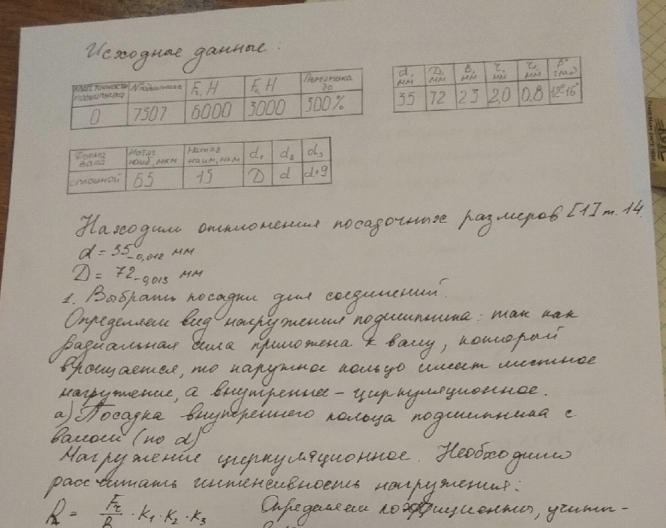 Исходные данные:
Класс точности подшипника | № подшипника | Fr, H | Fa, H | Перегрузка до
0 | 7507 | 6000 | 3000 | 300%
d, мм | D, мм | B, мм | r, мм | r₁, мм | β° град
35 | 72 | 23 | 2,0 | 0,8 | 12°-16°
Форма вала | Натяг наиб., мкм | Натяг наим., мкм | d₁ | d₂ | d₃
сплошной | 65 | 15 | D | d | d+9
Находим отклонения посадочных размеров [1] т. 14.
d = 35₋₀,₀₁₂ мм
D = 72₋₀,₀₁₃ мм
1. Выбрать посадки для соединений.
Определяем вид нагружения подшипника: так как
радиальная сила приложена к валу, который
вращается, то наружное кольцо имеет местное
нагружение, а внутренне - циркуляционное.
а) Посадка внутреннего кольца подшипника с
валом (по d)
Нагружение циркуляционное. Необходимо
рассчитать интенсивность нагружения:
= Fr/B · K₁ · K₂ · K₃ Определяем коэффициенты, учиты-